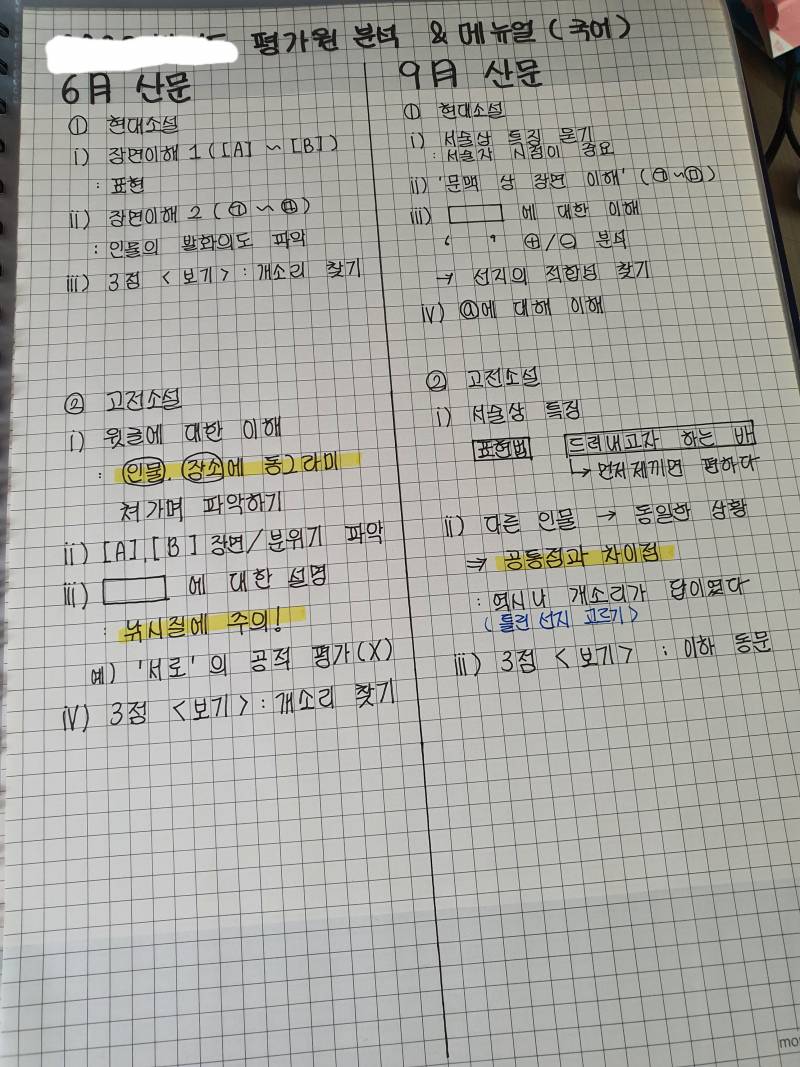 평가원 분석 & 메뉴얼 (국어)
6月 산문
① 현대소설
i) 장면이해 1 ([A] ~ [B])
: 표현
ii) 장면이해 2 (㉠ ~ ㉣)
: 인물의 발화의도 파악
iii) 3점 <보기> : 개소리 찾기
② 고전소설
i) 윗글에 대한 이해
: 인물, 장소에 동그라미
쳐 가며 파악하기
ii) [A], [B] 장면/분위기 파악
iii) 에 대한 설명
: 낚시질에 주의!
예) '서로'의 공적 평가(X)
iv) 3점 <보기> : 개소리 찾기
9月 산문
① 현대소설
i) 서술상 특징 묻기
: 서술자 시점이 중요
ii) '문맥 상 장면 이해' (㉠~㉤)
iii) 에 대한 이해
' ' ⊕/⊖ 분석
→ 선지의 적합성 찾기
iv) ⓐ에 대해 이해
② 고전소설
i) 서술상 특징
표현법 드러내고자 하는 바
↳ 먼저 제끼면 편하다
ii) 다른 인물 → 동일한 상황
⇒ 공통점과 차이점
: 역시나 개소리가 답이였다
(틀린 선지 고르기)
iii) 3점 <보기> : 이하 동문